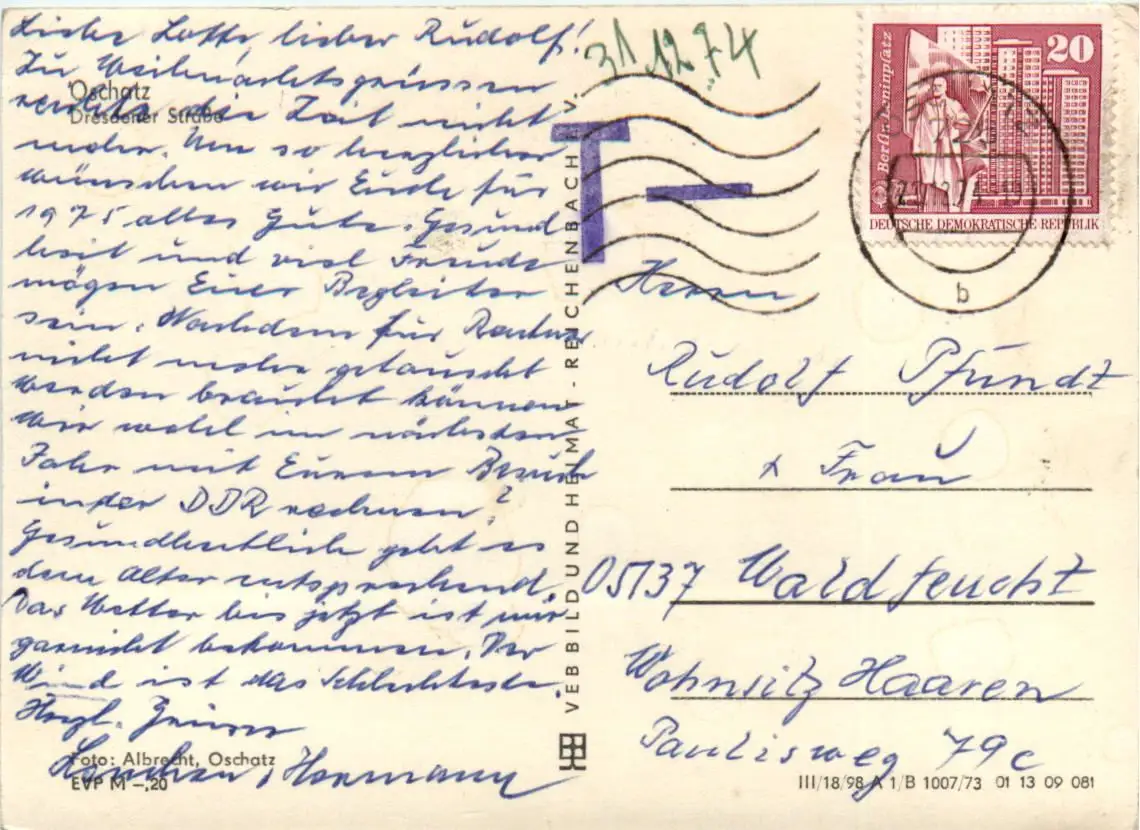 Liebe Lotte, lieber Rudolf!
Zu Weihnachtsgrüssen
reichte die Zeit nicht
mehr. Um so herzlicher
wünschen wir Euch für
1975 alles Gute. Gesund
heit und viel Freude
mögen Euer Begleiter
sein. Nachdem für Rentner
nicht mehr getauscht
werden braucht können
wir wohl im nächsten
Jahr mit Eurem Besuch
in der DDR rechnen?
Gesundheitlich geht es
dem Alter entsprechend.
Das Wetter bis jetzt ist mir
garnicht bekommen. Der
Wind ist das Schlechteste.
Herzl. Grüsse
Hermann
Oschatz
Dresdener Straße
Foto: Albrecht, Oschatz
EVP M –,20
VEB BILD UND HEIMAT · REICHENBACH i. V.
31.12.74
T –
20
Berlin, Leninplatz
DEUTSCHE DEMOKRATISCHE REPUBLIK
b
Herrn
Rudolf Pfundt
+ Frau
05137 Waldfeucht
Wohnsitz Haaren
Paulisweg 79c
III/18/98 A 1/B 1007/73 01 13 09 081